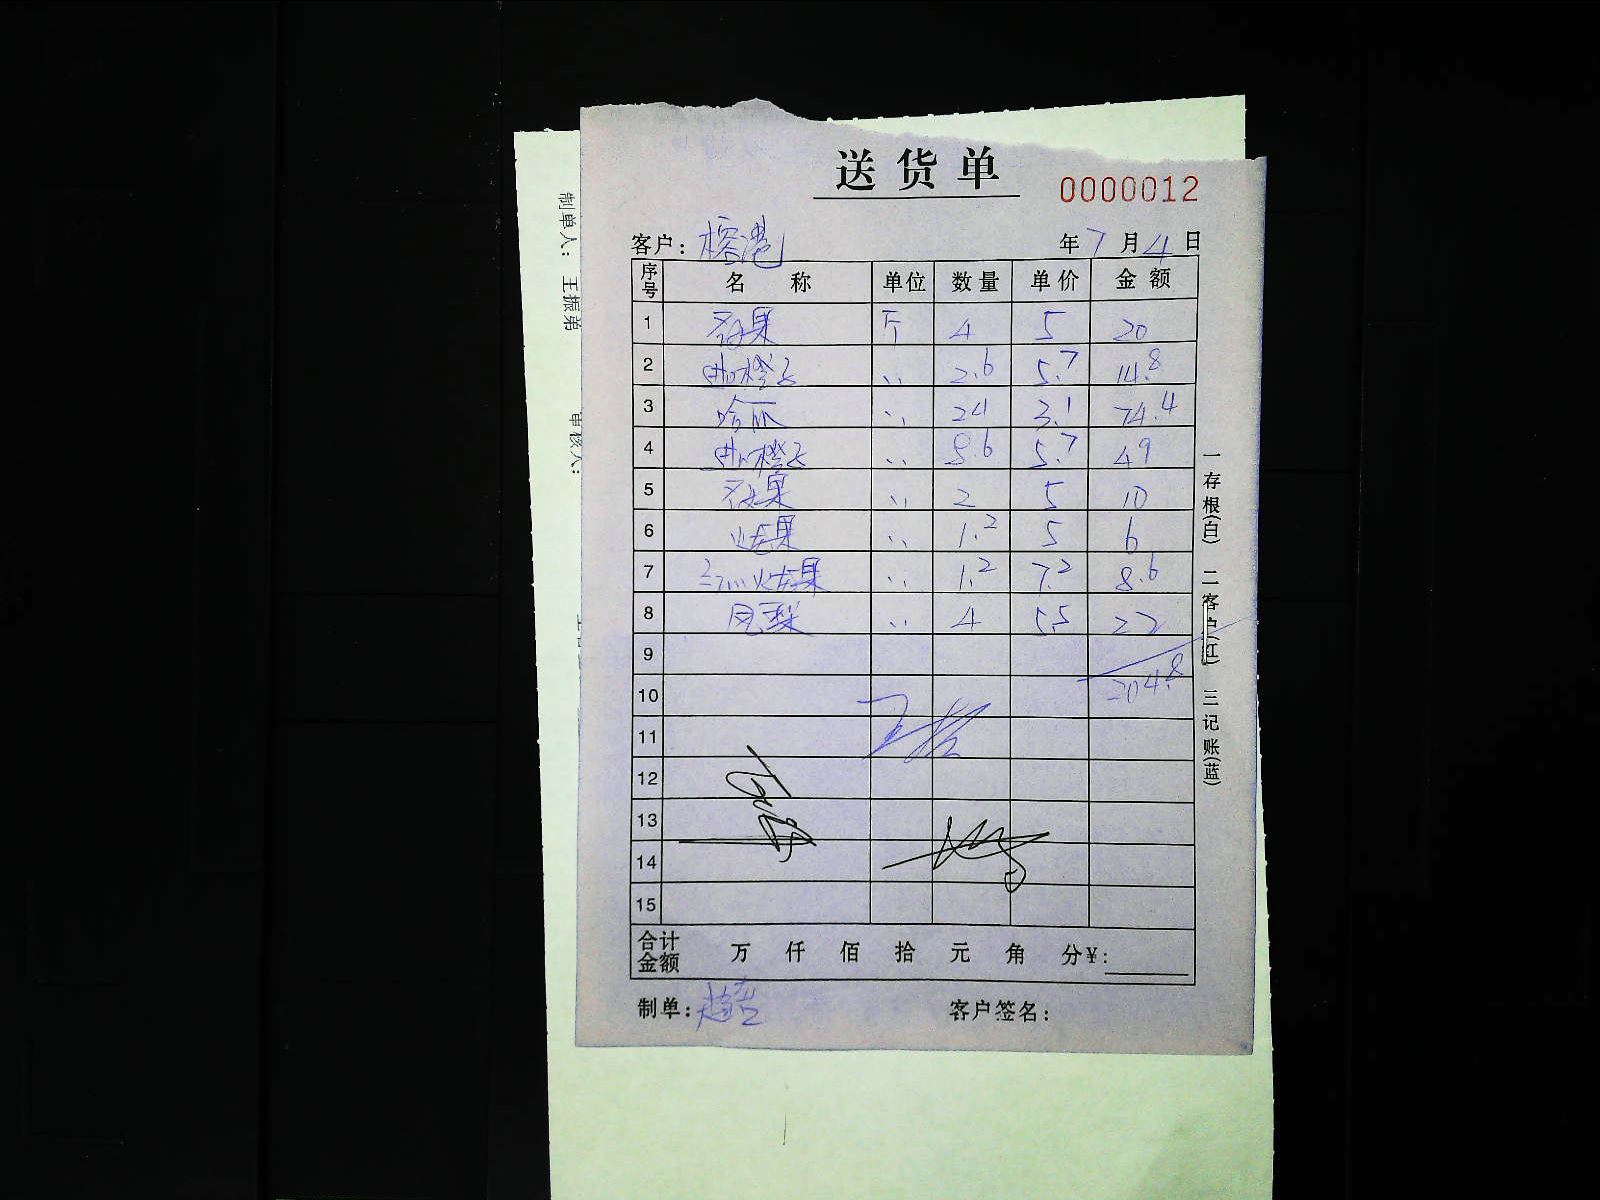 送货单
0000012
客户: 榕港 年7月4日
序号 名称 单位 数量 单价 金额
1 果 斤 4 5 20
2 橙子 〃 2.6 5.7 14.8
3 哈瓜 〃 24 3.1 74.4
4 橙子 〃 8.6 5.7 49
5 果 〃 2 5 10
6 火龙果 〃 1.2 5 6
7 红心火龙果 〃 1.2 7.2 8.6
8 凤梨 〃 4 5.5 22
9
10 204.8
11
12
13
14
15
合计金额 万 仟 佰 拾 元 角 分¥:
制单: 客户签名:
一存根(白) 二客户(红) 三记账(蓝)
制单人: 王振弟
审核人: